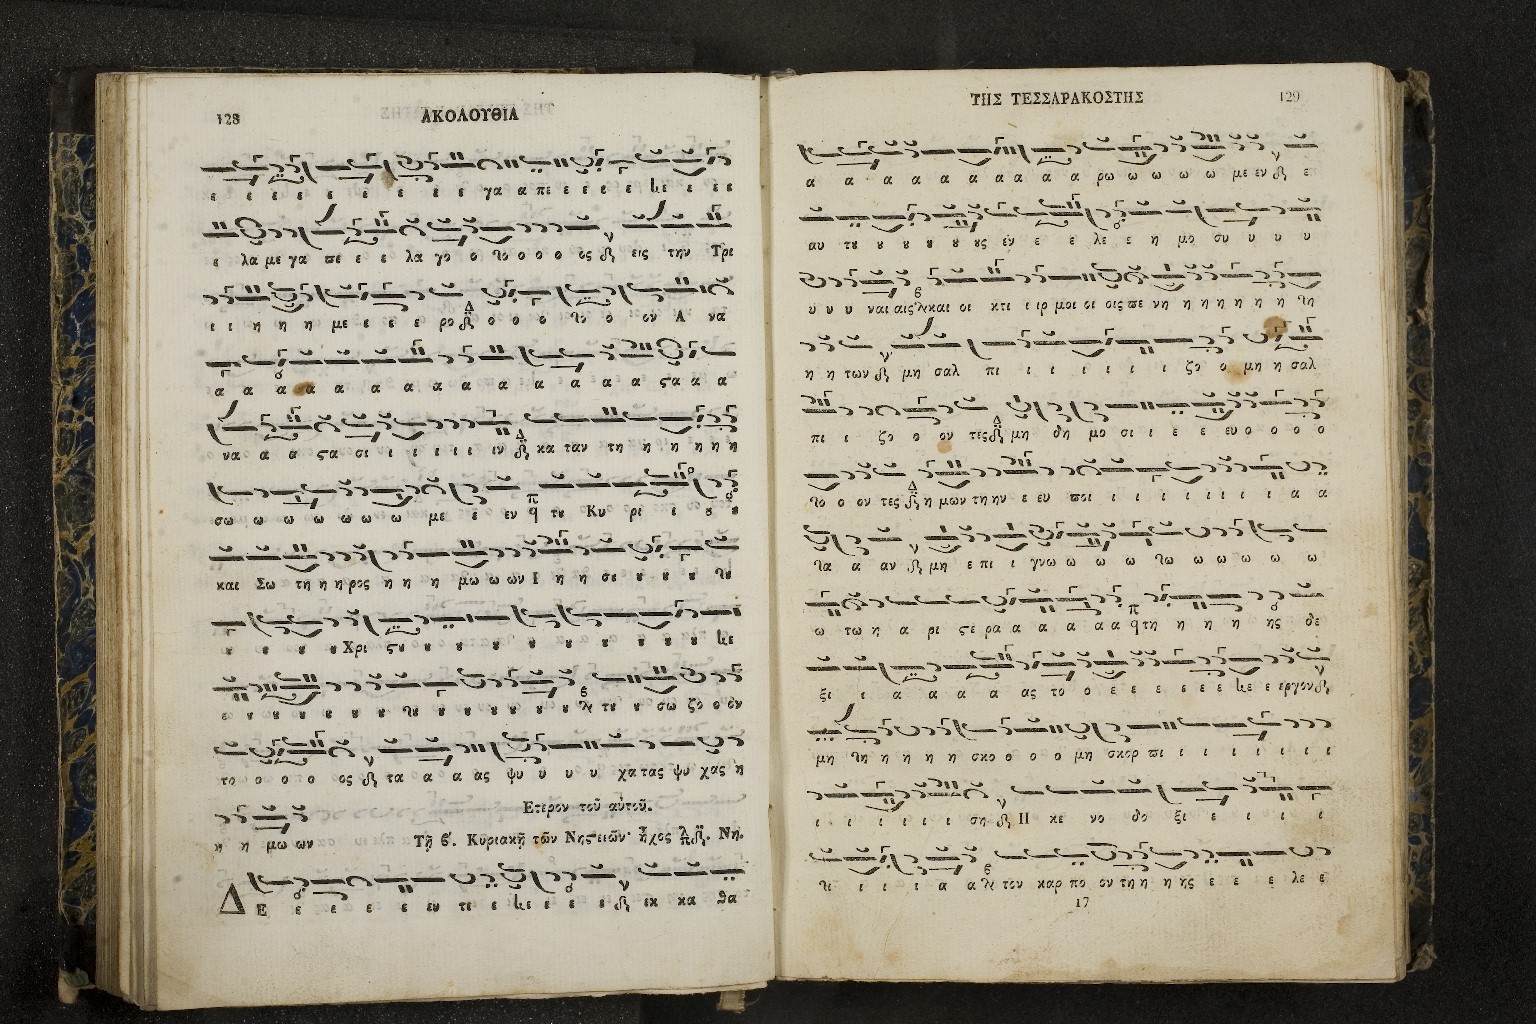 128 ΑΚΟΛΟΥΘΙΑ
ε ε ε ε ε ε ε ε ε γα α πε ε ε ε ε με ε ε ε
ε λα με γα πε ε ε λα γο ο το ο ο ο ος εις την Τρι
ι ι η η η με ε ε ε ρο ο ο ο το ο ον Α να
α α α α α α α α α α α α α α ϛα α α
να α α ϛα σι ι ι ι ι ι ιν κα ταν τη η η η η
σω ω ω ω ω ω ω με ε εν τȣ Κυ ρι ι ȣ ȣ
και Σω τη η η ρος η η η μω ω ων Ι η η σȣ ȣ ȣ ȣ τȣ
ȣ ȣ ȣ ȣ Χρι ϛȣ ȣ ȣ ȣ ȣ ȣ ȣ ȣ ȣ με
το ο ο ο ο ος τα α α α ας ψυ υ υ υ χα τας ψυ χας η
Ετερον τοῦ αὐτοῦ.
η η μω ων
Τῇ β΄. Κυριακῇ τῶν Νηϛειῶν· ἦχος Νη.
ΔΕ ε ε ε ε ευ τε ε με ε ε ε εκ κα θα
ΤΗΣ ΤΕΣΣΑΡΑΚΟΣΤΗΣ 129
α α α α α α α α α α ρω ω ω ω ω με εν ε
αυ τȣ ȣ ȣ ȣ ȣ ȣς εν ε ε λε ε η μο συ υ υ υ
υ υ υ ναι αις και οι κτι ι ιρ μοι οι οις πε νη η η η η η η τη
η η των μη σαλ πι ι ι ι ι ι ι ζο ο μη η σαλ
πι ι ζο ο ον τες μη δη μο σι ι ε ε ευ ο ο ο ο
το ο ον τες η μων τη ην ε ευ ποι ι ι ι ι ι ι ι ι α α
τα α αν μη ε πι ι γνω ω ω ω τω ω ω ω ω ω
ω τω η α ρι ϛε ρα α α α α α τη η η η ης δε
ξι ι α α α α ας το ο ε ε ε ε ε ε με ε εργον
μη τη η η η η σκο ο ο ο μη σκορ πι ι ι ι ι ι ι ι
ι ι ι ι ι ι ση Π κε νο δο ξι ε ι ι ι
τι ι ι ι α α τον καρ πο ον τη η η ης ε ε ε λε ε
17